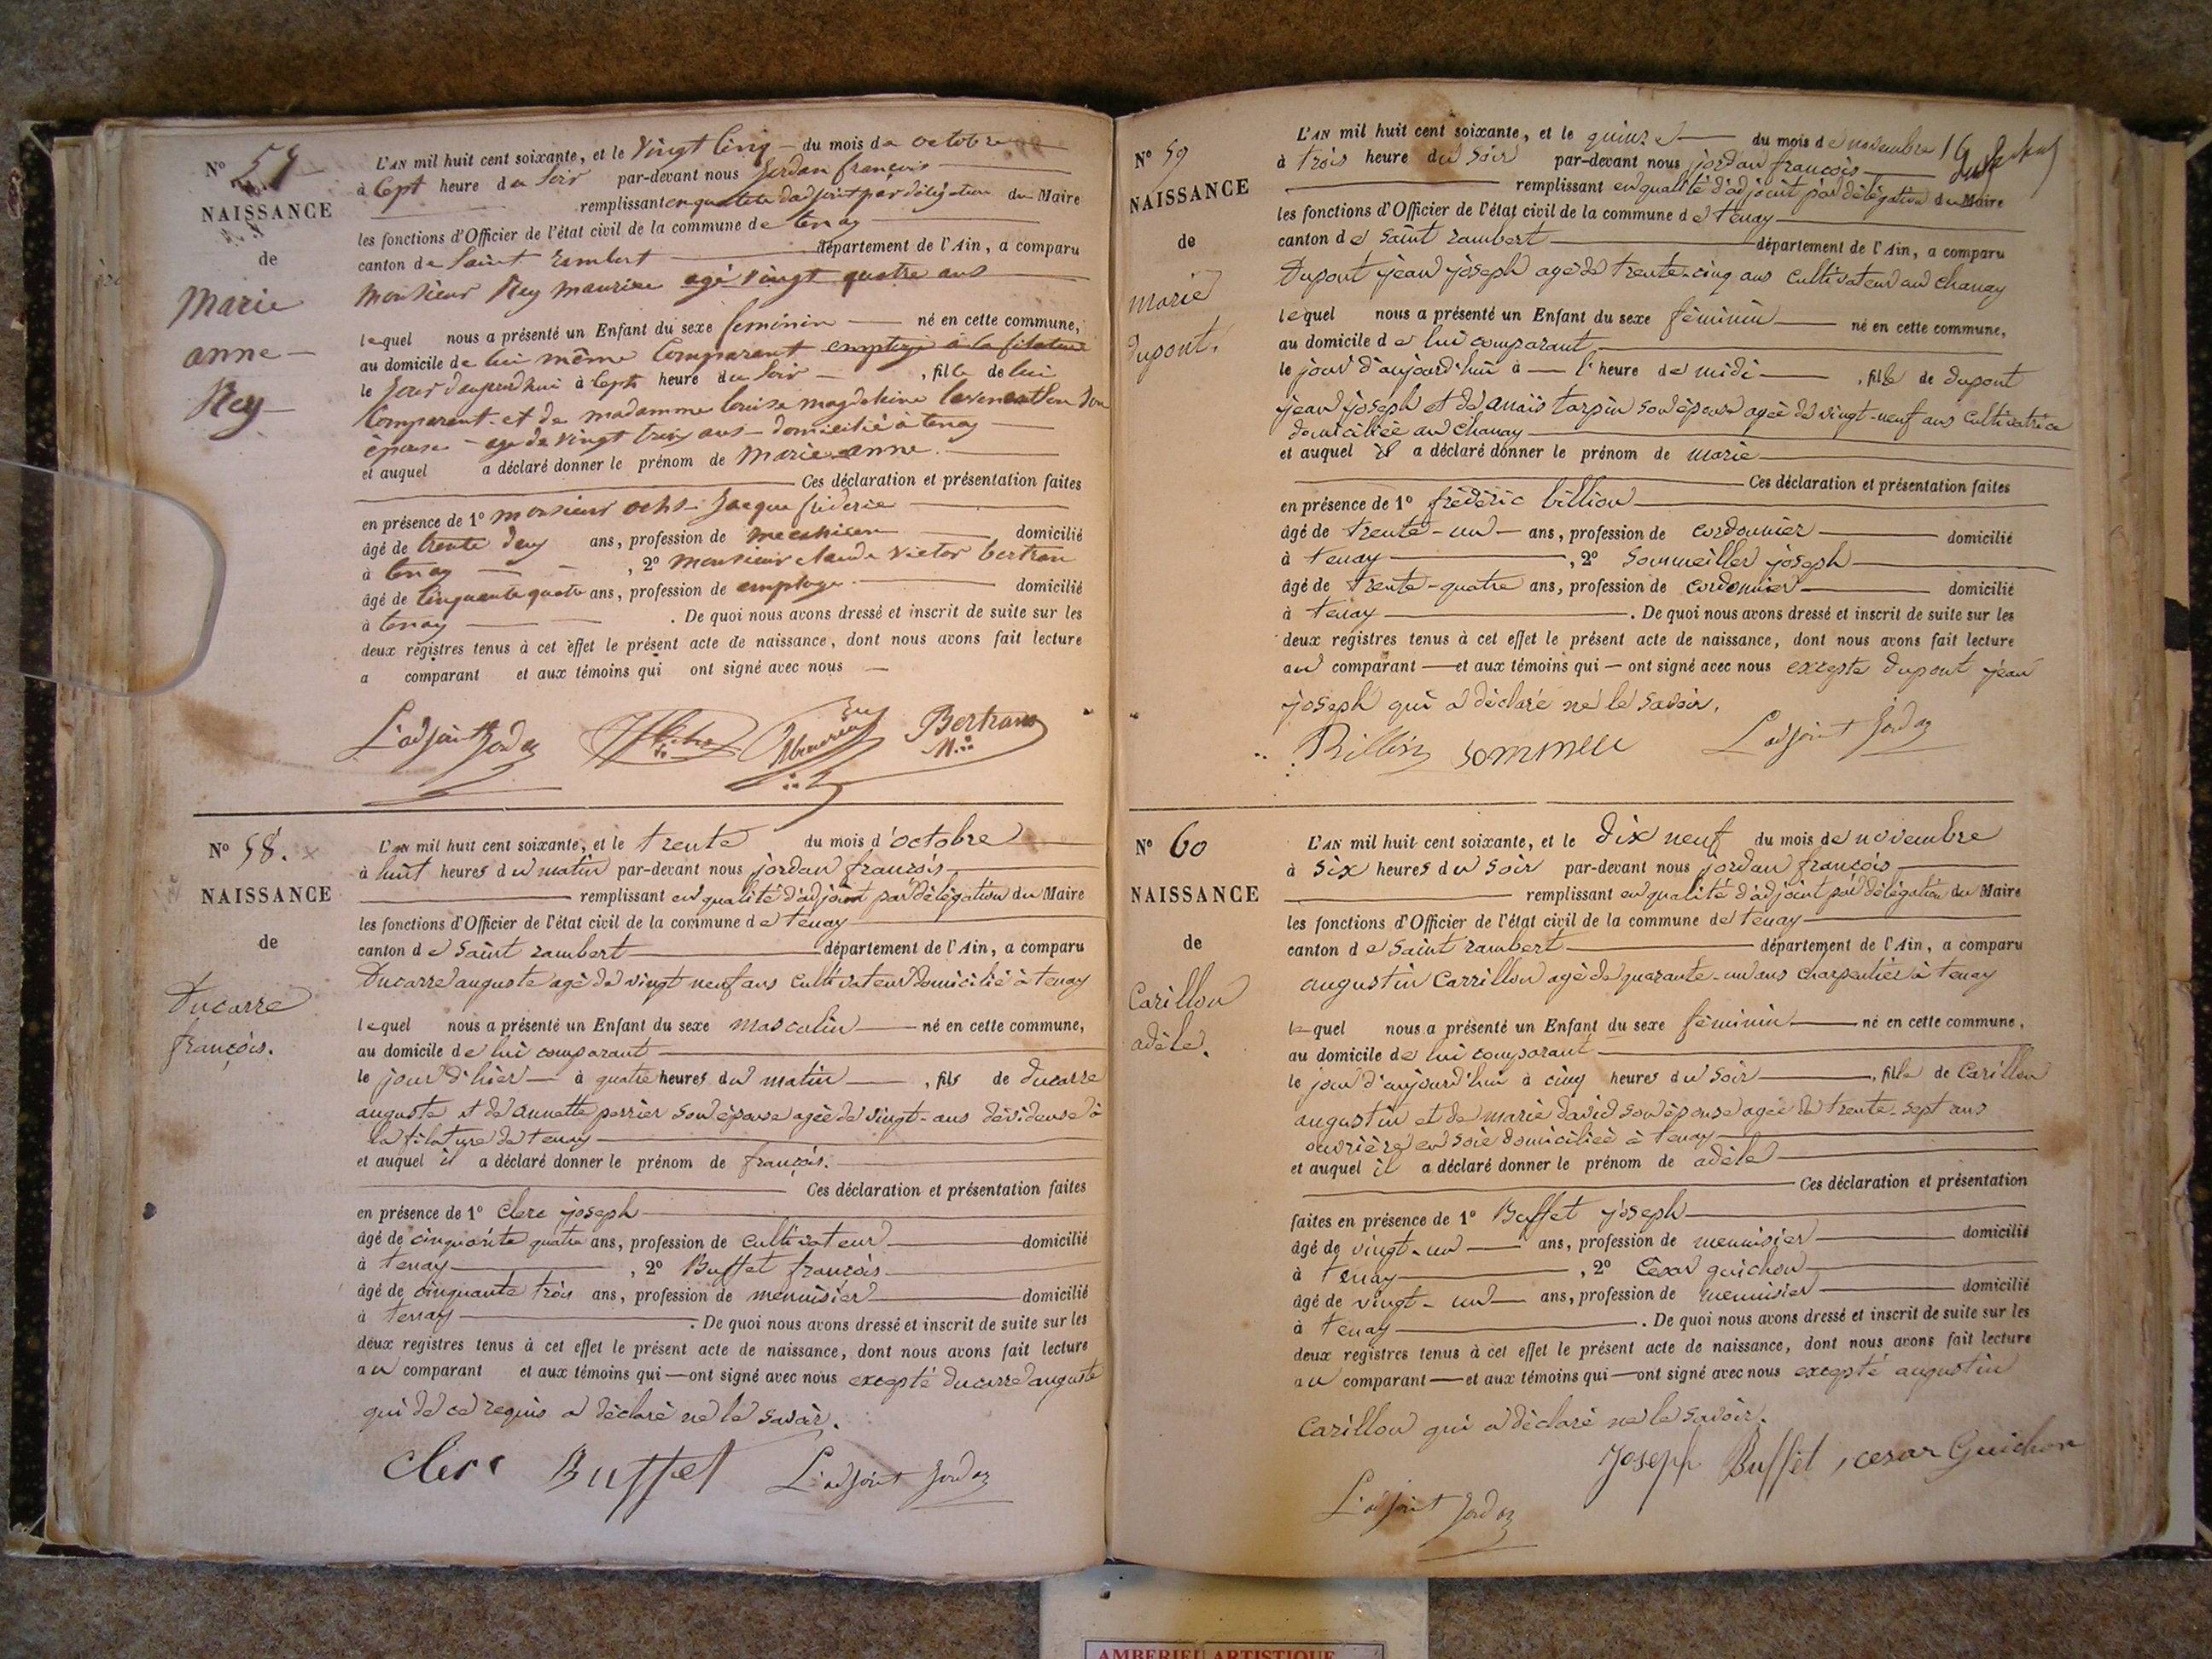 N° 57
NAISSANCE
de
Marie
anne
Rey
L'AN mil huit cent soixante, et le vingt cinq du mois de octobre
à Sept heure du Soir par-devant nous Jordan françois
remplissant en qualité d'adjoint par délégation du Maire
les fonctions d'Officier de l'état civil de la commune de tenay
canton de Saint Rambert département de l'Ain, a comparu
monsieur Rey maurice agé vingt quatre ans
lequel nous a présenté un Enfant du sexe feminin né en cette commune,
au domicile de lui même Comparant employé à la filature
le Jour daujourdhui à Sept heure du Soir , fille de lui
Comparent et de madamme louise magdeleine son
épouse age de vingt trois ans domicilié à tenay
et auquel a déclaré donner le prénom de marie anne.
Ces déclaration et présentation faites
en présence de 1° monsieur ochs Jacque fréderic
âgé de trente deux ans, profession de domicilié
à tenay , 2° monsieur claude victor bertran
âgé de Cinquante quatre ans, profession de employe domicilié
à tenay . De quoi nous avons dressé et inscrit de suite sur les
deux registres tenus à cet effet le présent acte de naissance, dont nous avons fait lecture
a comparant et aux témoins qui ont signé avec nous
L'adjoint Jordan Bertran
N° 58.
NAISSANCE
de
Ducarre
françois.
L'AN mil huit cent soixante, et le trente du mois d'octobre
à huit heures du matin par-devant nous jordan françois
remplissant en qualité d'adjoint par délégation du Maire
les fonctions d'Officier de l'état civil de la commune de tenay
canton de Saint rambert département de l'Ain, a comparu
Ducarre auguste agé de vingt neuf ans cultivateur domicilié à tenay
lequel nous a présenté un Enfant du sexe masculin né en cette commune,
au domicile de lui comparant
le jour d'hier à quatre heures du matin , fils de ducarre
auguste et de annette perrier son épouse agée de vingt-ans dévideuse à
la filature de tenay
et auquel il a déclaré donner le prénom de françois.
Ces déclaration et présentation faites
en présence de 1° Clerc joseph
âgé de cinquante quatre ans, profession de cultivateur domicilié
à tenay , 2° Buffet françois
âgé de cinquante trois ans, profession de menuisier domicilié
à tenay . De quoi nous avons dressé et inscrit de suite sur les
deux registres tenus à cet effet le présent acte de naissance, dont nous avons fait lecture
au comparant et aux témoins qui ont signé avec nous excepté ducarre auguste
qui de ce requis a déclaré ne le savoir.
Clerc Buffet L'adjoint Jordan
N° 59
NAISSANCE
de
marie
dupont.
L'AN mil huit cent soixante, et le quinze du mois de novembre
à trois heure du soir par-devant nous jordan françois
remplissant en qualité d'adjoint par délégation du Maire
les fonctions d'Officier de l'état civil de la commune de tenay
canton de saint rambert département de l'Ain, a comparu
Dupont jean joseph agé de trente-cinq ans cultivateur au chanay
lequel nous a présenté un Enfant du sexe féminin né en cette commune,
au domicile de lui comparant
le jour d'aujourd'hui à l'heure de midi , fille de dupont
jean joseph et de anaïs tarpin son épouse agée de vingt-neuf ans cultivatrice
domiciliée au chanay
et auquel il a déclaré donner le prénom de marie
Ces déclaration et présentation faites
en présence de 1° frédéric billion
âgé de trente-un ans, profession de cordonnier domicilié
à tenay , 2° Sommeiller joseph
âgé de trente-quatre ans, profession de cordonnier domicilié
à tenay . De quoi nous avons dressé et inscrit de suite sur les
deux registres tenus à cet effet le présent acte de naissance, dont nous avons fait lecture
au comparant et aux témoins qui ont signé avec nous excepté dupont jean
joseph qui a déclaré ne le savoir.
Billion L'adjoint Jordan
N° 60
NAISSANCE
de
Carillon
adèle.
L'AN mil huit cent soixante, et le dix neuf du mois de novembre
à six heures du soir par-devant nous jordan françois
remplissant en qualité d'adjoint par délégation du Maire
les fonctions d'Officier de l'état civil de la commune de tenay
canton de saint rambert département de l'Ain, a comparu
augustin Carrillon agé de quarante-un ans charpentier à tenay
lequel nous a présenté un Enfant du sexe féminin né en cette commune,
au domicile de lui comparant
le jour d'aujourd'hui à cinq heures du soir , fille de Carillon
augustin et de marie david son épouse agée de trente-sept ans
ouvrière en soie domiciliée à tenay
et auquel il a déclaré donner le prénom de adèle
Ces déclaration et présentation
faites en présence de 1° Buffet joseph
âgé de vingt-un ans, profession de menuisier domicilié
à tenay , 2° César guichon
âgé de vingt-un ans, profession de menuisier domicilié
à tenay . De quoi nous avons dressé et inscrit de suite sur les
deux registres tenus à cet effet le présent acte de naissance, dont nous avons fait lecture
au comparant et aux témoins qui ont signé avec nous excepté augustin
Carillon qui a déclaré ne le savoir.
Joseph Buffet, cesar Guichon
L'adjoint Jordan
AMBERIEU ARTISTIQUE